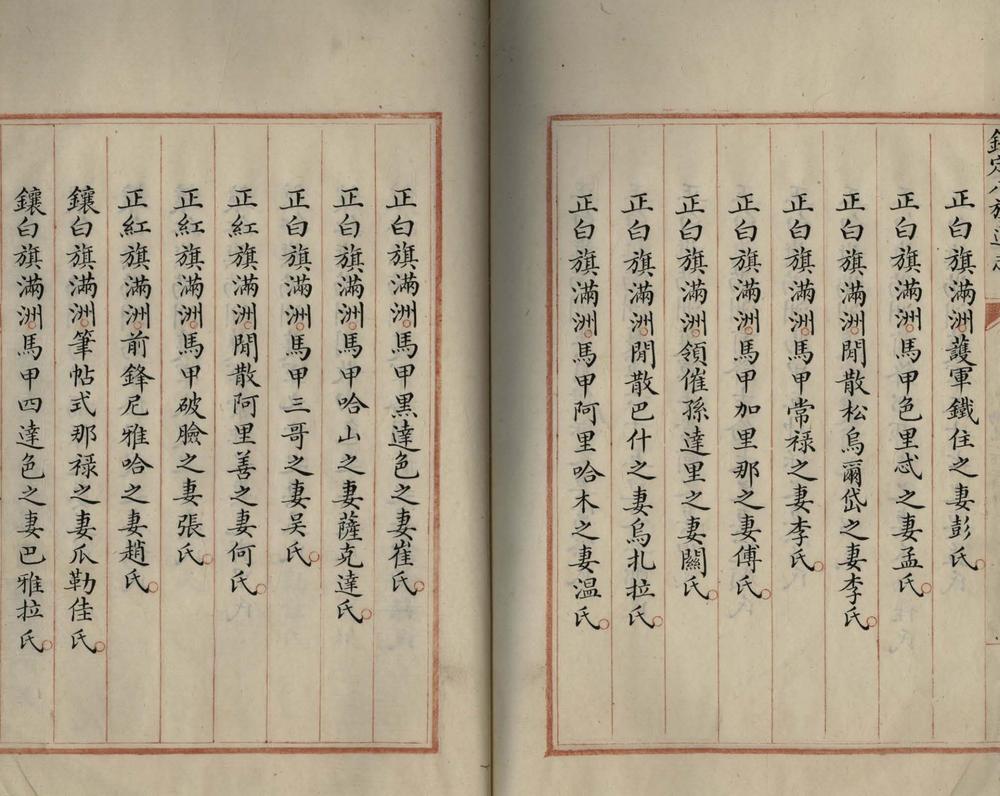 欽定八旗通志
正白旗滿洲護軍鐵住之妻彭氏
正白旗滿洲馬甲色里忒之妻孟氏
正白旗滿洲閒散松烏爾岱之妻李氏
正白旗滿洲馬甲常祿之妻李氏
正白旗滿洲馬甲加里那之妻傅氏
正白旗滿洲領催孫達里之妻關氏
正白旗滿洲閒散巴什之妻烏扎拉氏
正白旗滿洲馬甲阿里哈木之妻温氏
正白旗滿洲馬甲黑達色之妻崔氏
正白旗滿洲馬甲哈山之妻薩克達氏
正白旗滿洲馬甲三哥之妻吴氏
正紅旗滿洲閒散阿里善之妻何氏
正紅旗滿洲馬甲破臉之妻張氏
正紅旗滿洲前鋒尼雅哈之妻趙氏
鑲白旗滿洲筆帖式那祿之妻瓜勒佳氏
鑲白旗滿洲馬甲四達色之妻巴雅拉氏